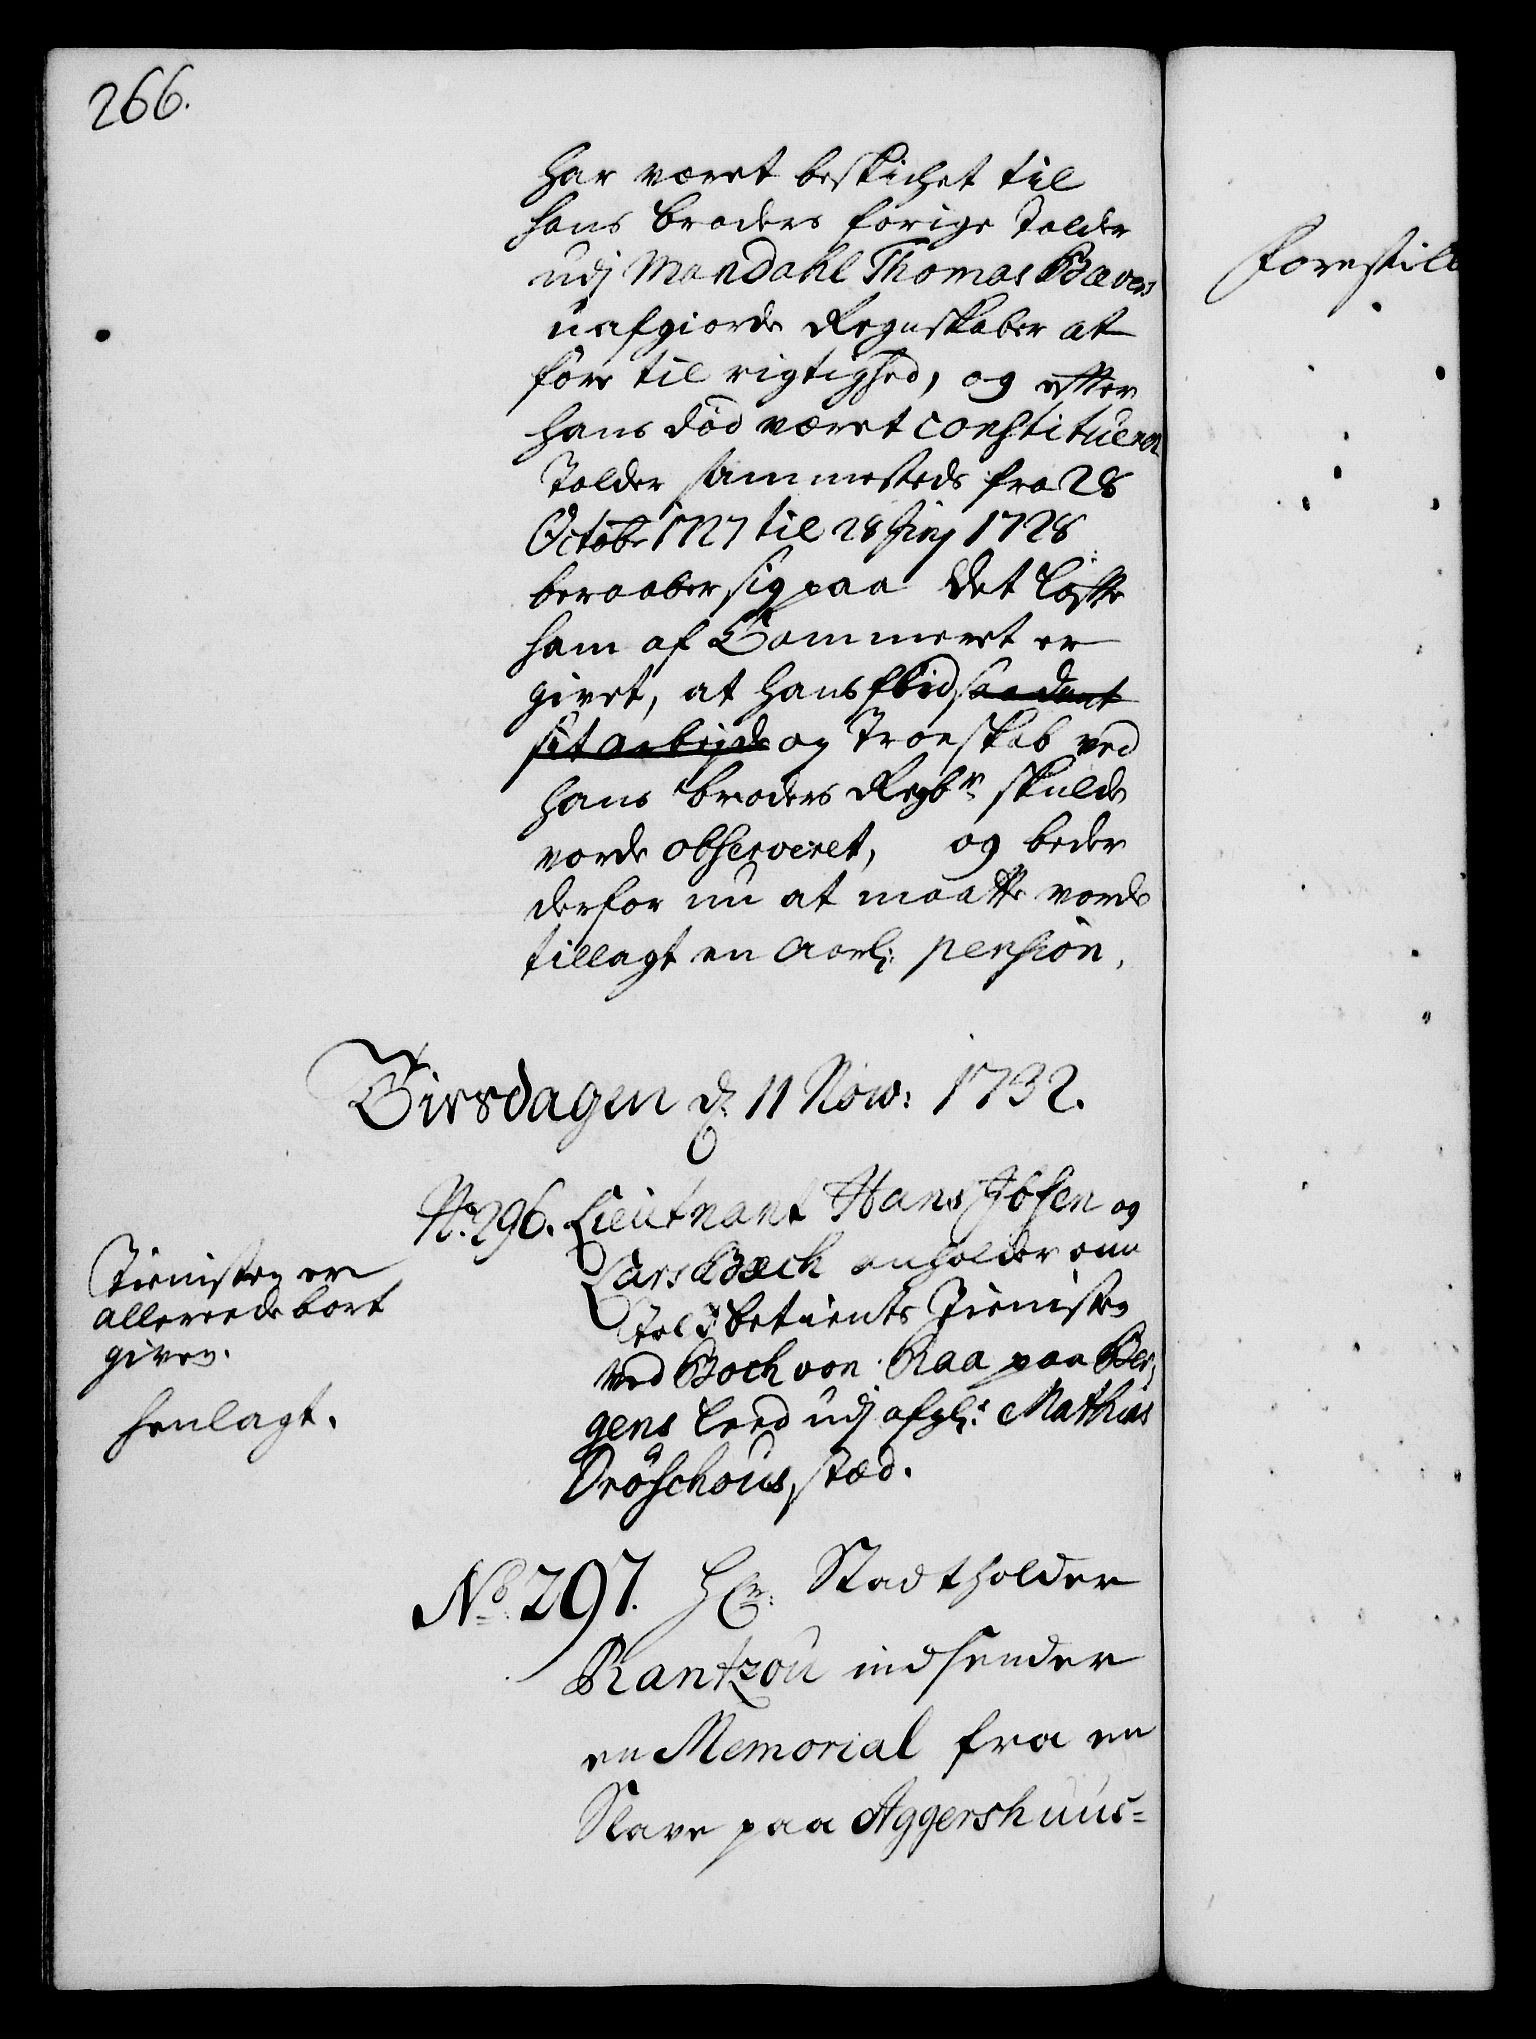 266.
har været beskichet til
hans broders forige Tolder
udj Mandahl Thomas Bævers
uafgiorde Regnskaber at
føre til rigtighed, og efter
hans død været constitueret
Tolder sammesteds fra 28
Octobr 1727 til 28 Junj 1728
beraaber sig paa det løfte
ham af Cammeret er
givet, at hans flid saadant
sit arbejde og Troeskab ved
hans broders Regbr skulde
vorde observeret, og beder
derfor nu at maatte vorde
tillagt en aarl: pension.
Tirsdagen d: 11 Nov: 1732.
No. 296. Lieutnant Hans Ibsen og
Lars Bæch anholder om
Told betients Tienisten
ved Boch von Raa paa Ber,
gens leed udj afgl: Mathias
Dröschous stæd.
Tienisten er
allereede bort
given.
henlagt.
No. 297. Hr: Stadtholder
Rantzou indsender
en Memorial fra en
Slave paa Aggershuus=
forestill